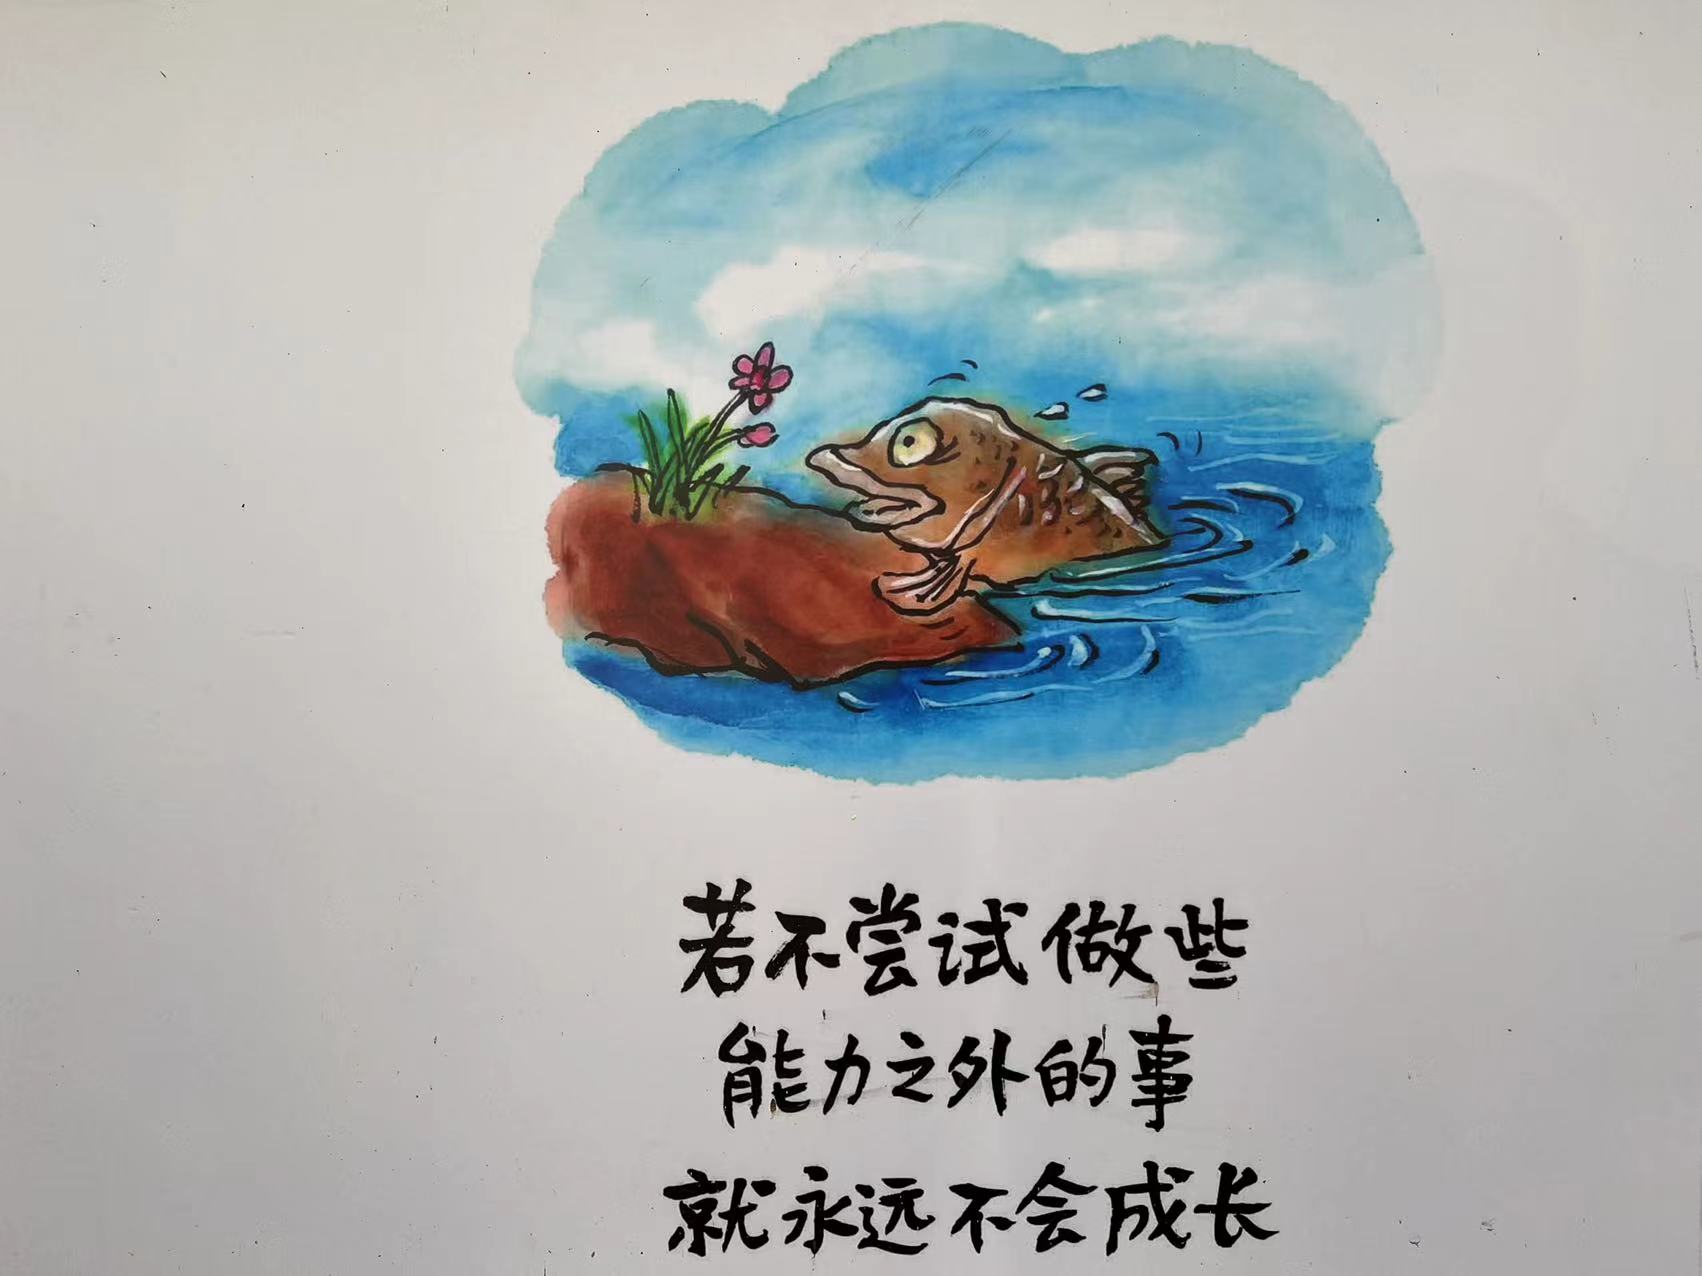 若不尝试做些
能力之外的事
就永远不会成长